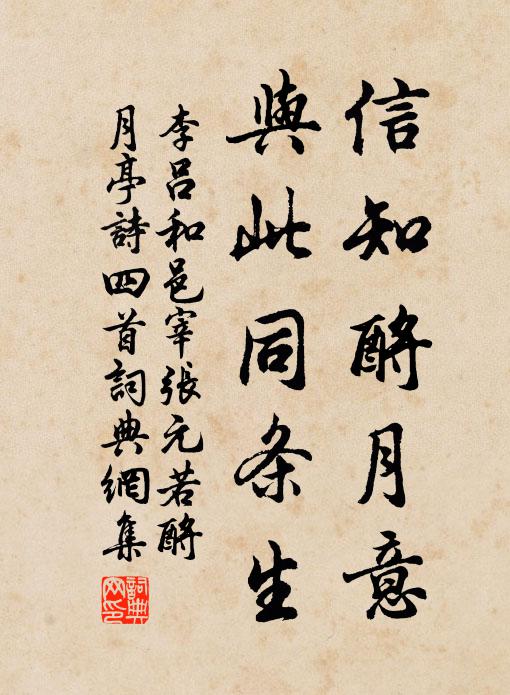 信知酹月意
與此同条生
李吕和邑宰張元若酹
月亭詩四首詞典網集
詞典网印